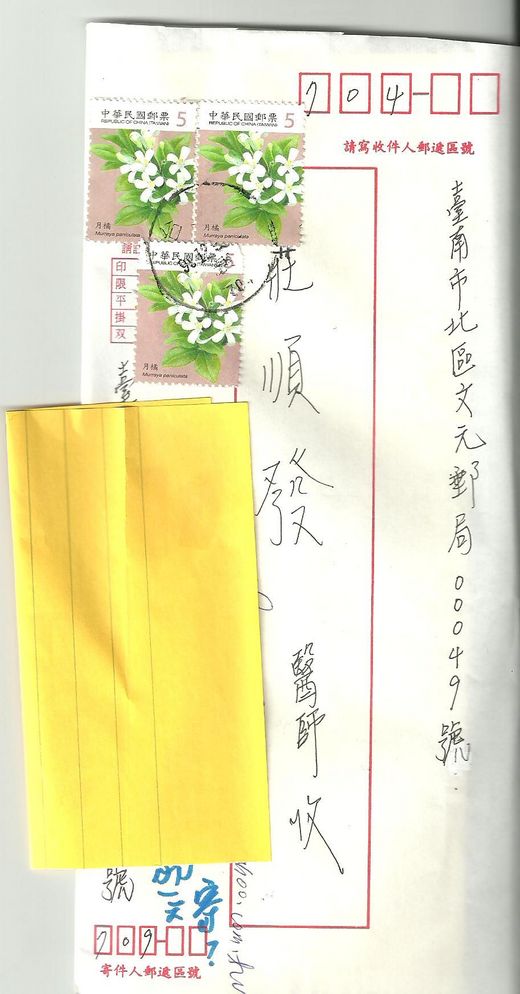 704
請寫收件人郵遞區號
臺南市北區文元郵局00049號
莊順發 醫師收
中華民國郵票 5
REPUBLIC OF CHINA (TAIWAN)
月橘
Murraya paniculata
中華民國郵票 5
REPUBLIC OF CHINA (TAIWAN)
月橘
Murraya paniculata
中華民國郵票 5
REPUBLIC OF CHINA (TAIWAN)
月橘
Murraya paniculata
印限平掛双
臺
號
寄?
hoo.com.tw
709
寄件人郵遞區號